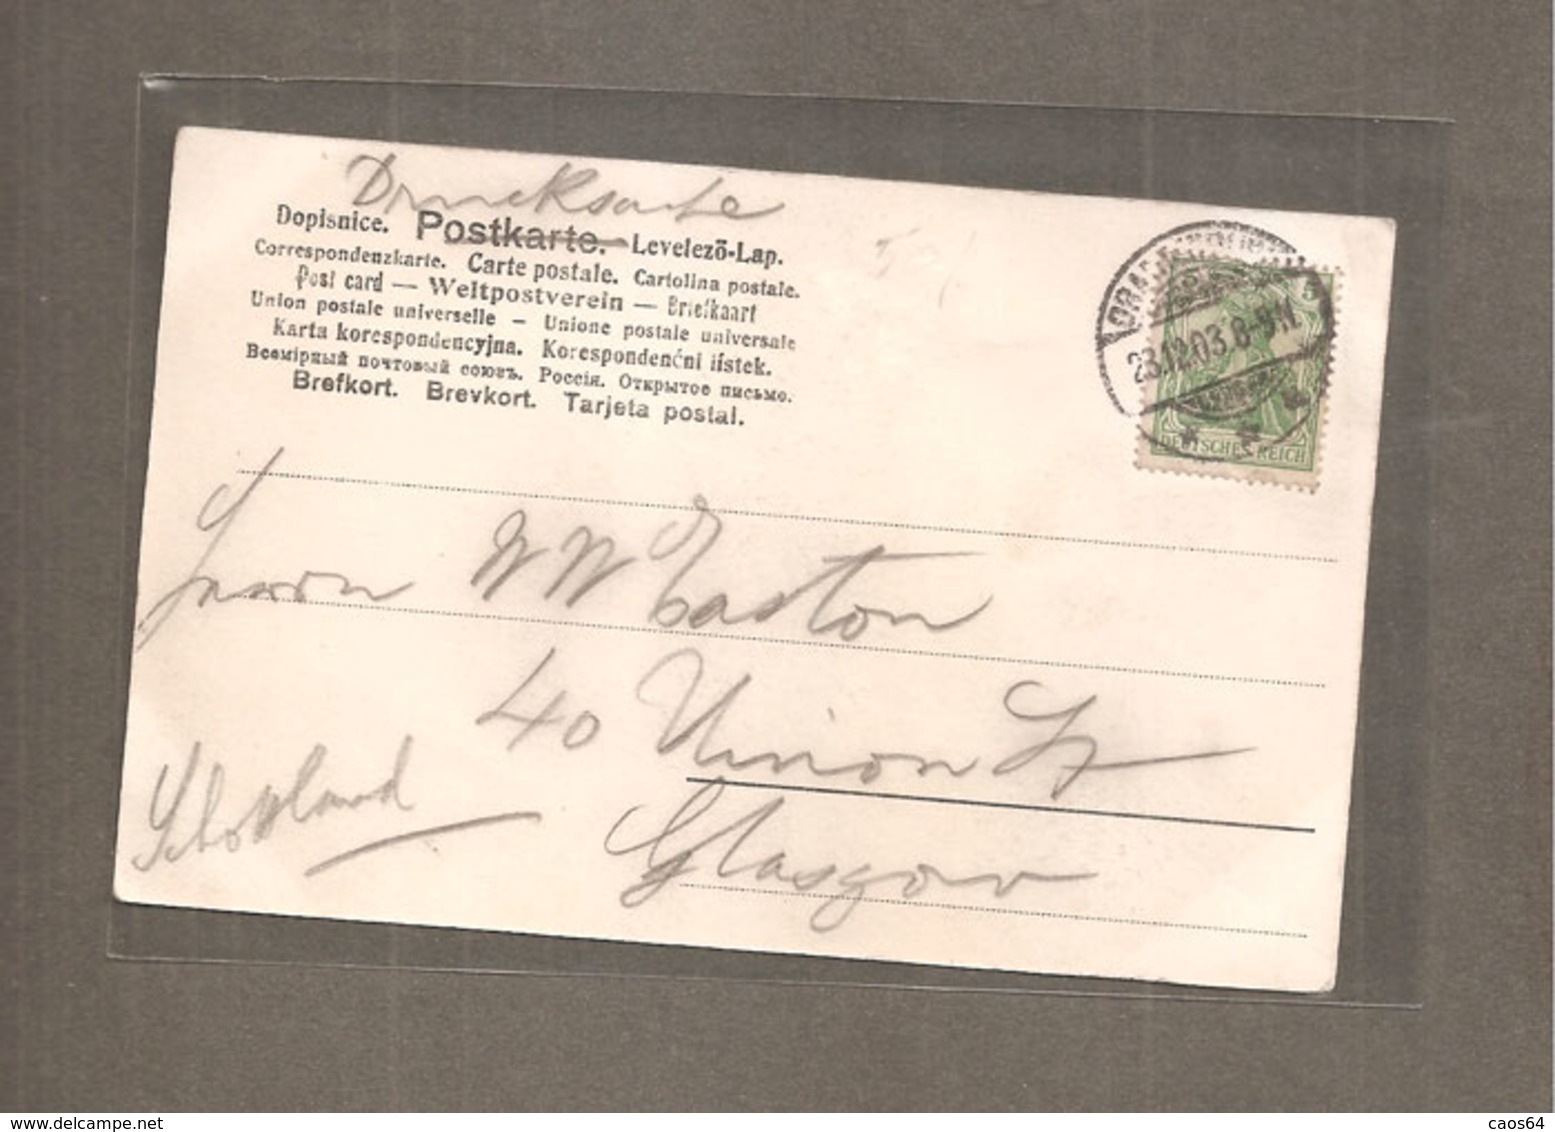 Drucksache
Dopisnice. Postkarte. Levelező-Lap.
Correspondenzkarte. Carte postale. Cartolina postale.
Post card — Weltpostverein — Briefkaart
Union postale universelle — Unione postale universale
Karta korespondencyjna. Korespondenćni listek.
Всемірный почтовый союзъ. Россія. Открытое письмо.
Brefkort. Brevkort. Tarjeta postal.
23.12.03.8-9N.
5
DEUTSCHES REICH
Herrn W W Easton
40 Union St
Glasgow
Schottland
delcampe.net
caos64